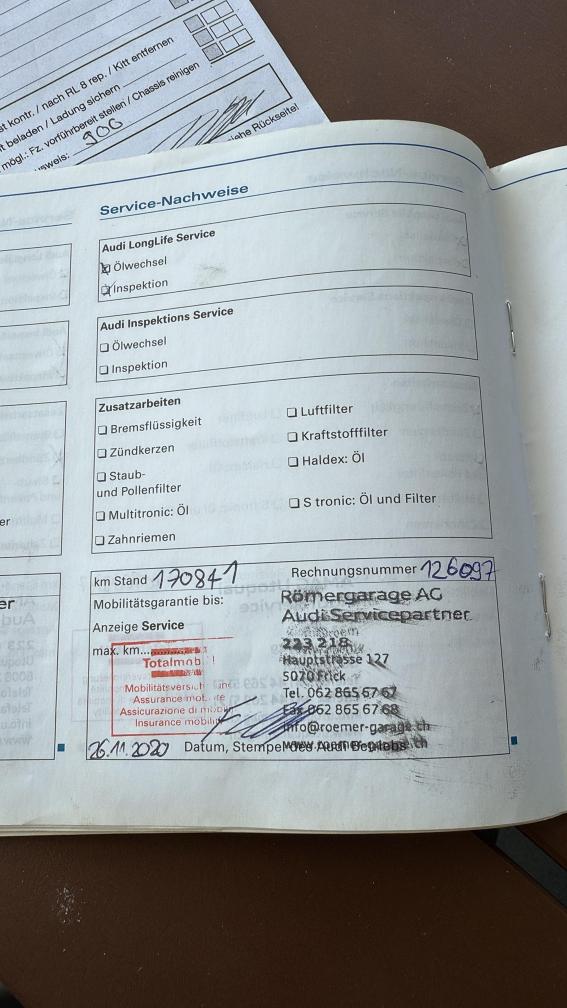 at kontr. / nach RL 8 rep. / Kitt entfernen
t beladen / Ladung sichern
mögl.: Fz. vorführbereit stellen / Chassis reinigen
usweis: 906
iehe Rückseite!
Service-Nachweise
Audi LongLife Service
Ölwechsel
Inspektion
Audi Inspektions Service
Ölwechsel
Inspektion
Zusatzarbeiten
Bremsflüssigkeit
Zündkerzen
Staub-
und Pollenfilter
Multitronic: Öl
Zahnriemen
Luftfilter
Kraftstofffilter
Haldex: Öl
S tronic: Öl und Filter
er
er
km Stand 170841
Rechnungsnummer 126097
Mobilitätsgarantie bis:
Anzeige Service
max. km
Totalmob !
Mobilitätsversich
Assurance mob
Assicurazione di mobil
Insurance mobili
Römergarage AG
Audi Servicepartner
223 218
Hauptstrasse 127
5070 Frick
Tel. 062 865 67 67
Fax 062 865 67 68
info@roemer-garage.ch
www.roemer-garage.ch
26.11.2020 Datum, Stempel des Audi Betriebs